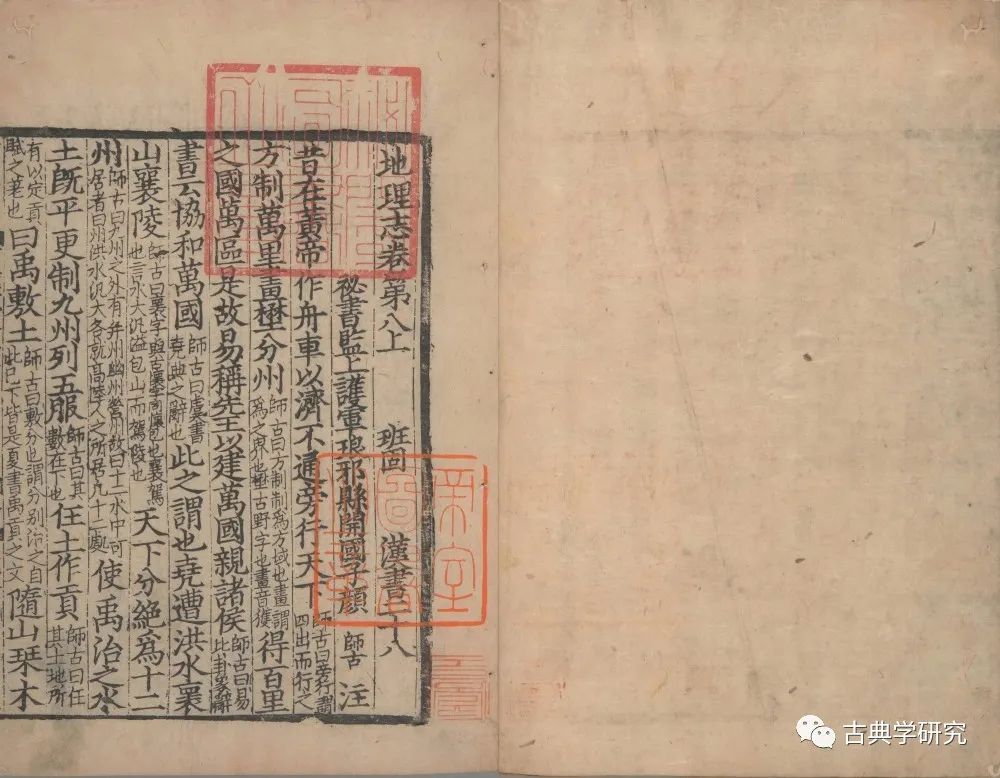 地理志卷第八上 班固 漢書二十八
祕書監上護軍琅邪縣開國子顏 師古 注
昔在黃帝作舟車以濟不通旁行天下師古曰旁行謂四出而行之
方制萬里畫壄分州師古曰方制制為方域也畫謂為之界也壄古野字也畫音獲得百里
之國萬區是故易稱先王以建萬國親諸侯師古曰易比卦象辭
書云協和萬國師古曰虞書堯典之辭也此之謂也堯遭洪水襄
山襄陵師古曰襄字與古懷字同懷包也襄駕也言水大汎溢包山而駕陵也天下分絕為十二
州師古曰九州之外有并州幽州營州故曰十二水中可居者曰州洪水汎大各就高陸人之所居凡十二處使禹治之水
土既平更制九州列五服師古曰其數在下也任土作貢師古曰任其土地所
有以定貢賦之差也曰禹敷土師古曰敷分也謂分別治之自此已下皆是夏書禹貢之文隨山栞木
古典学研究